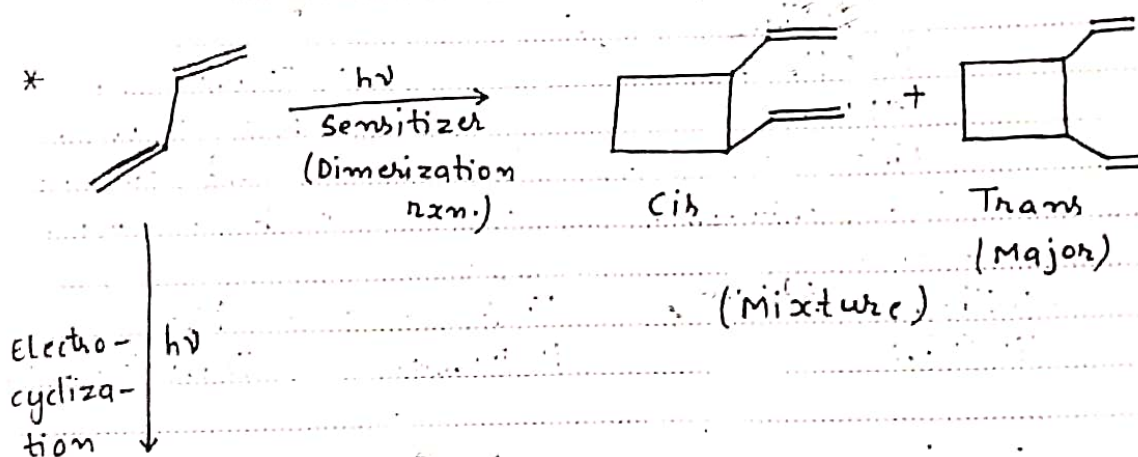 *
hν
Sensitizer
(Dimerization
rxn.)
+
Cis
Trans
(Major)
(Mixture)
Electro-
cycliza-
tion
hν